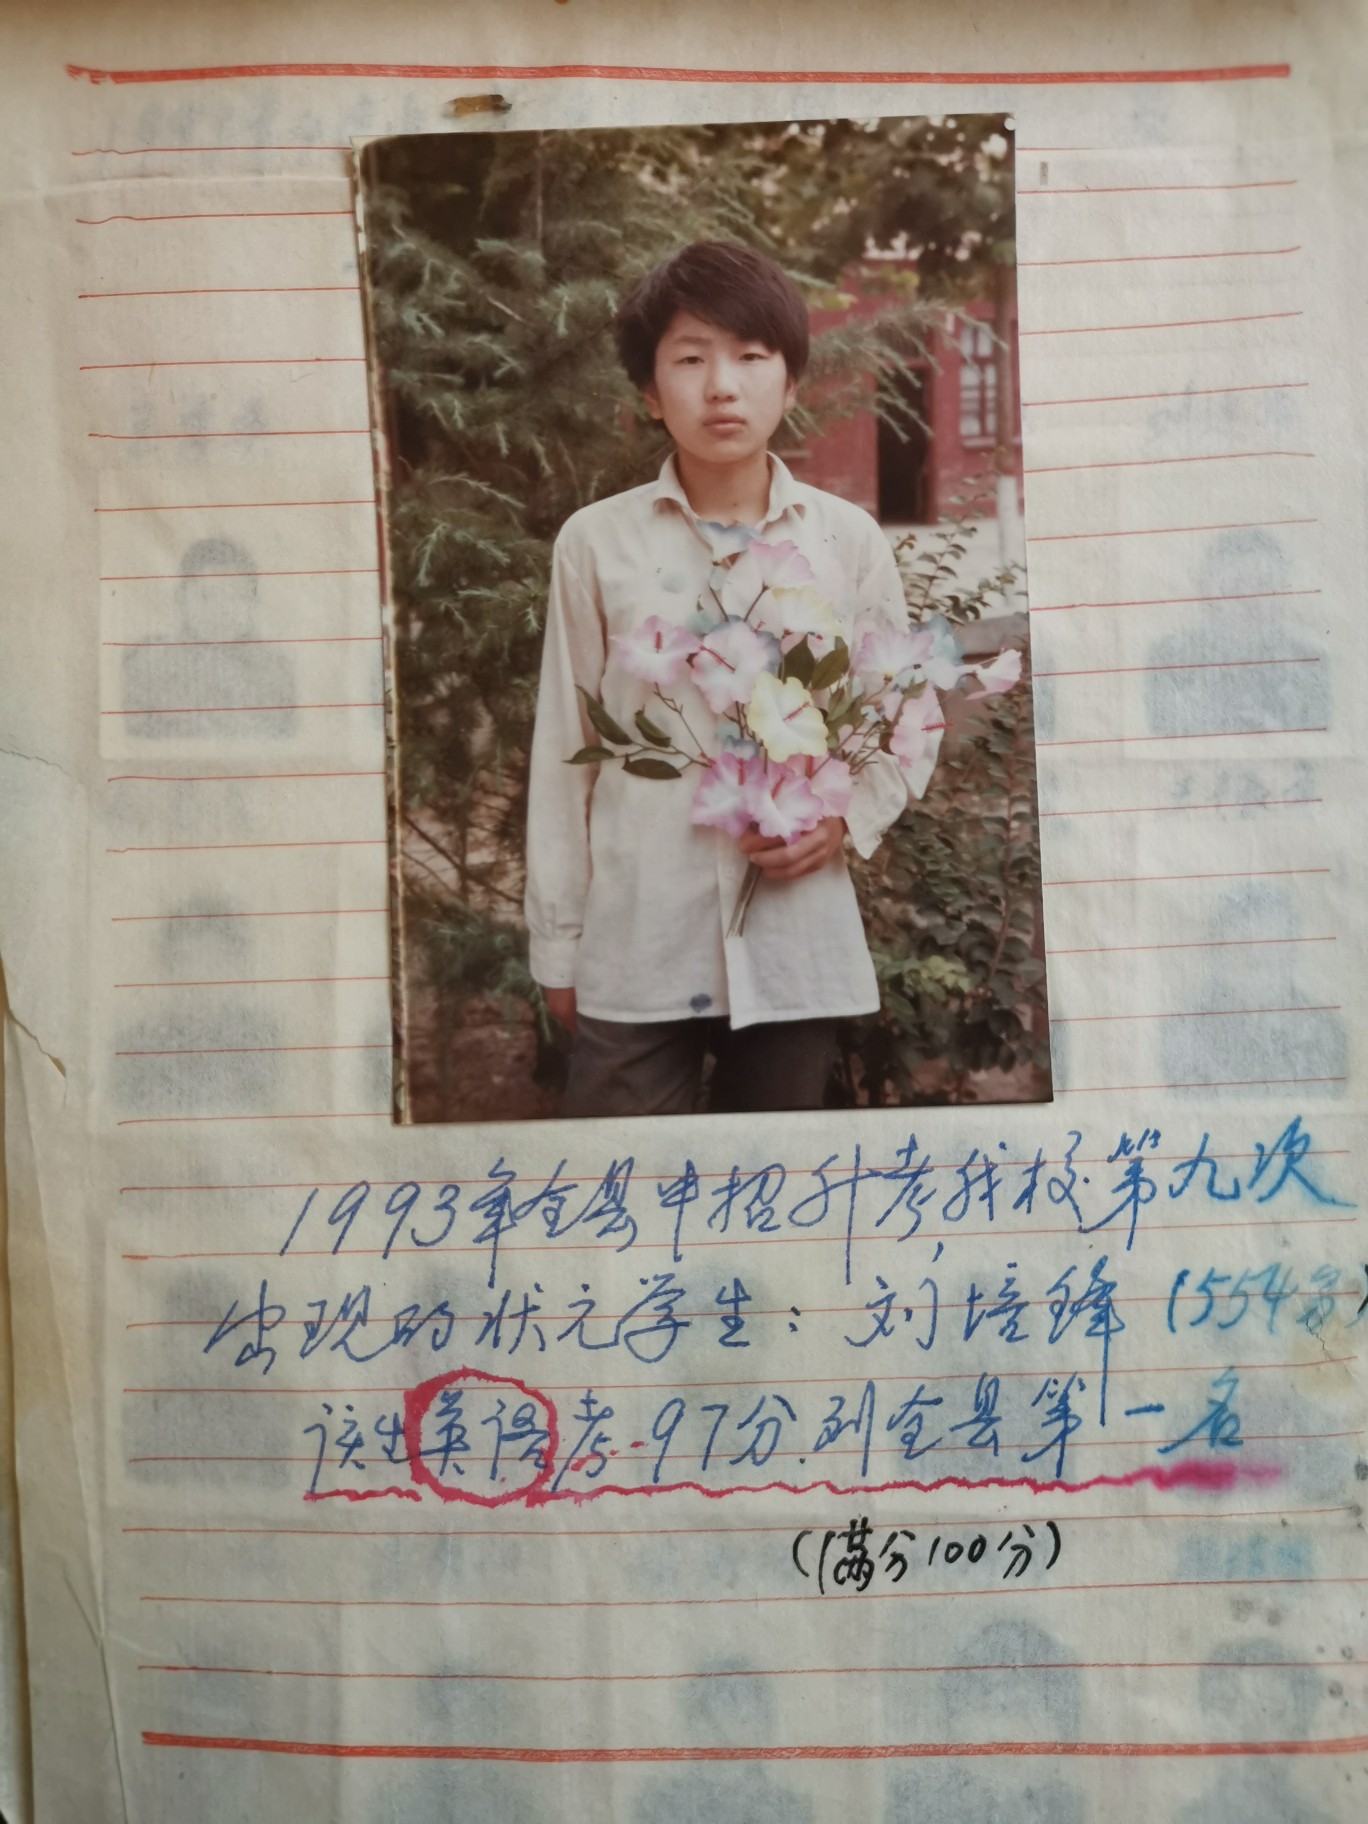 1993年全县中招升考,我校第九次
出现的状元学生:刘培锋(554分)
该生英语考97分.列全县第一名
(满分100分)